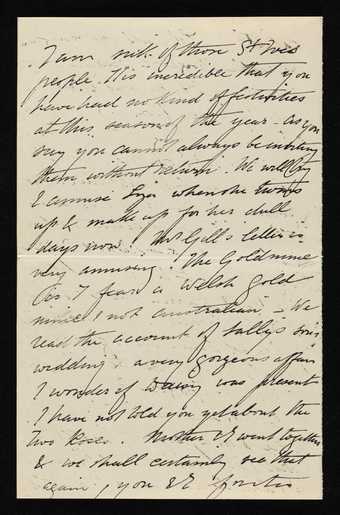 I am sick of those St Ives
people. It is incredible that you
have had no kind of festivities
at this season of the year - as you
say you cannot always be inviting
them without return. We will try
& amuse when she turns
up & make up for her dull
days now. Mr Gill's letter is
very amusing. The Gold mine
is I fear a Welsh gold
mine & not Australian - We
read the account of Sally's son's
wedding a very gorgeous affair
I wonder if Daisy was present
I have not told you yet about the
Two Roses. Mother & I went together
& we shall certainly see that
again, you & I